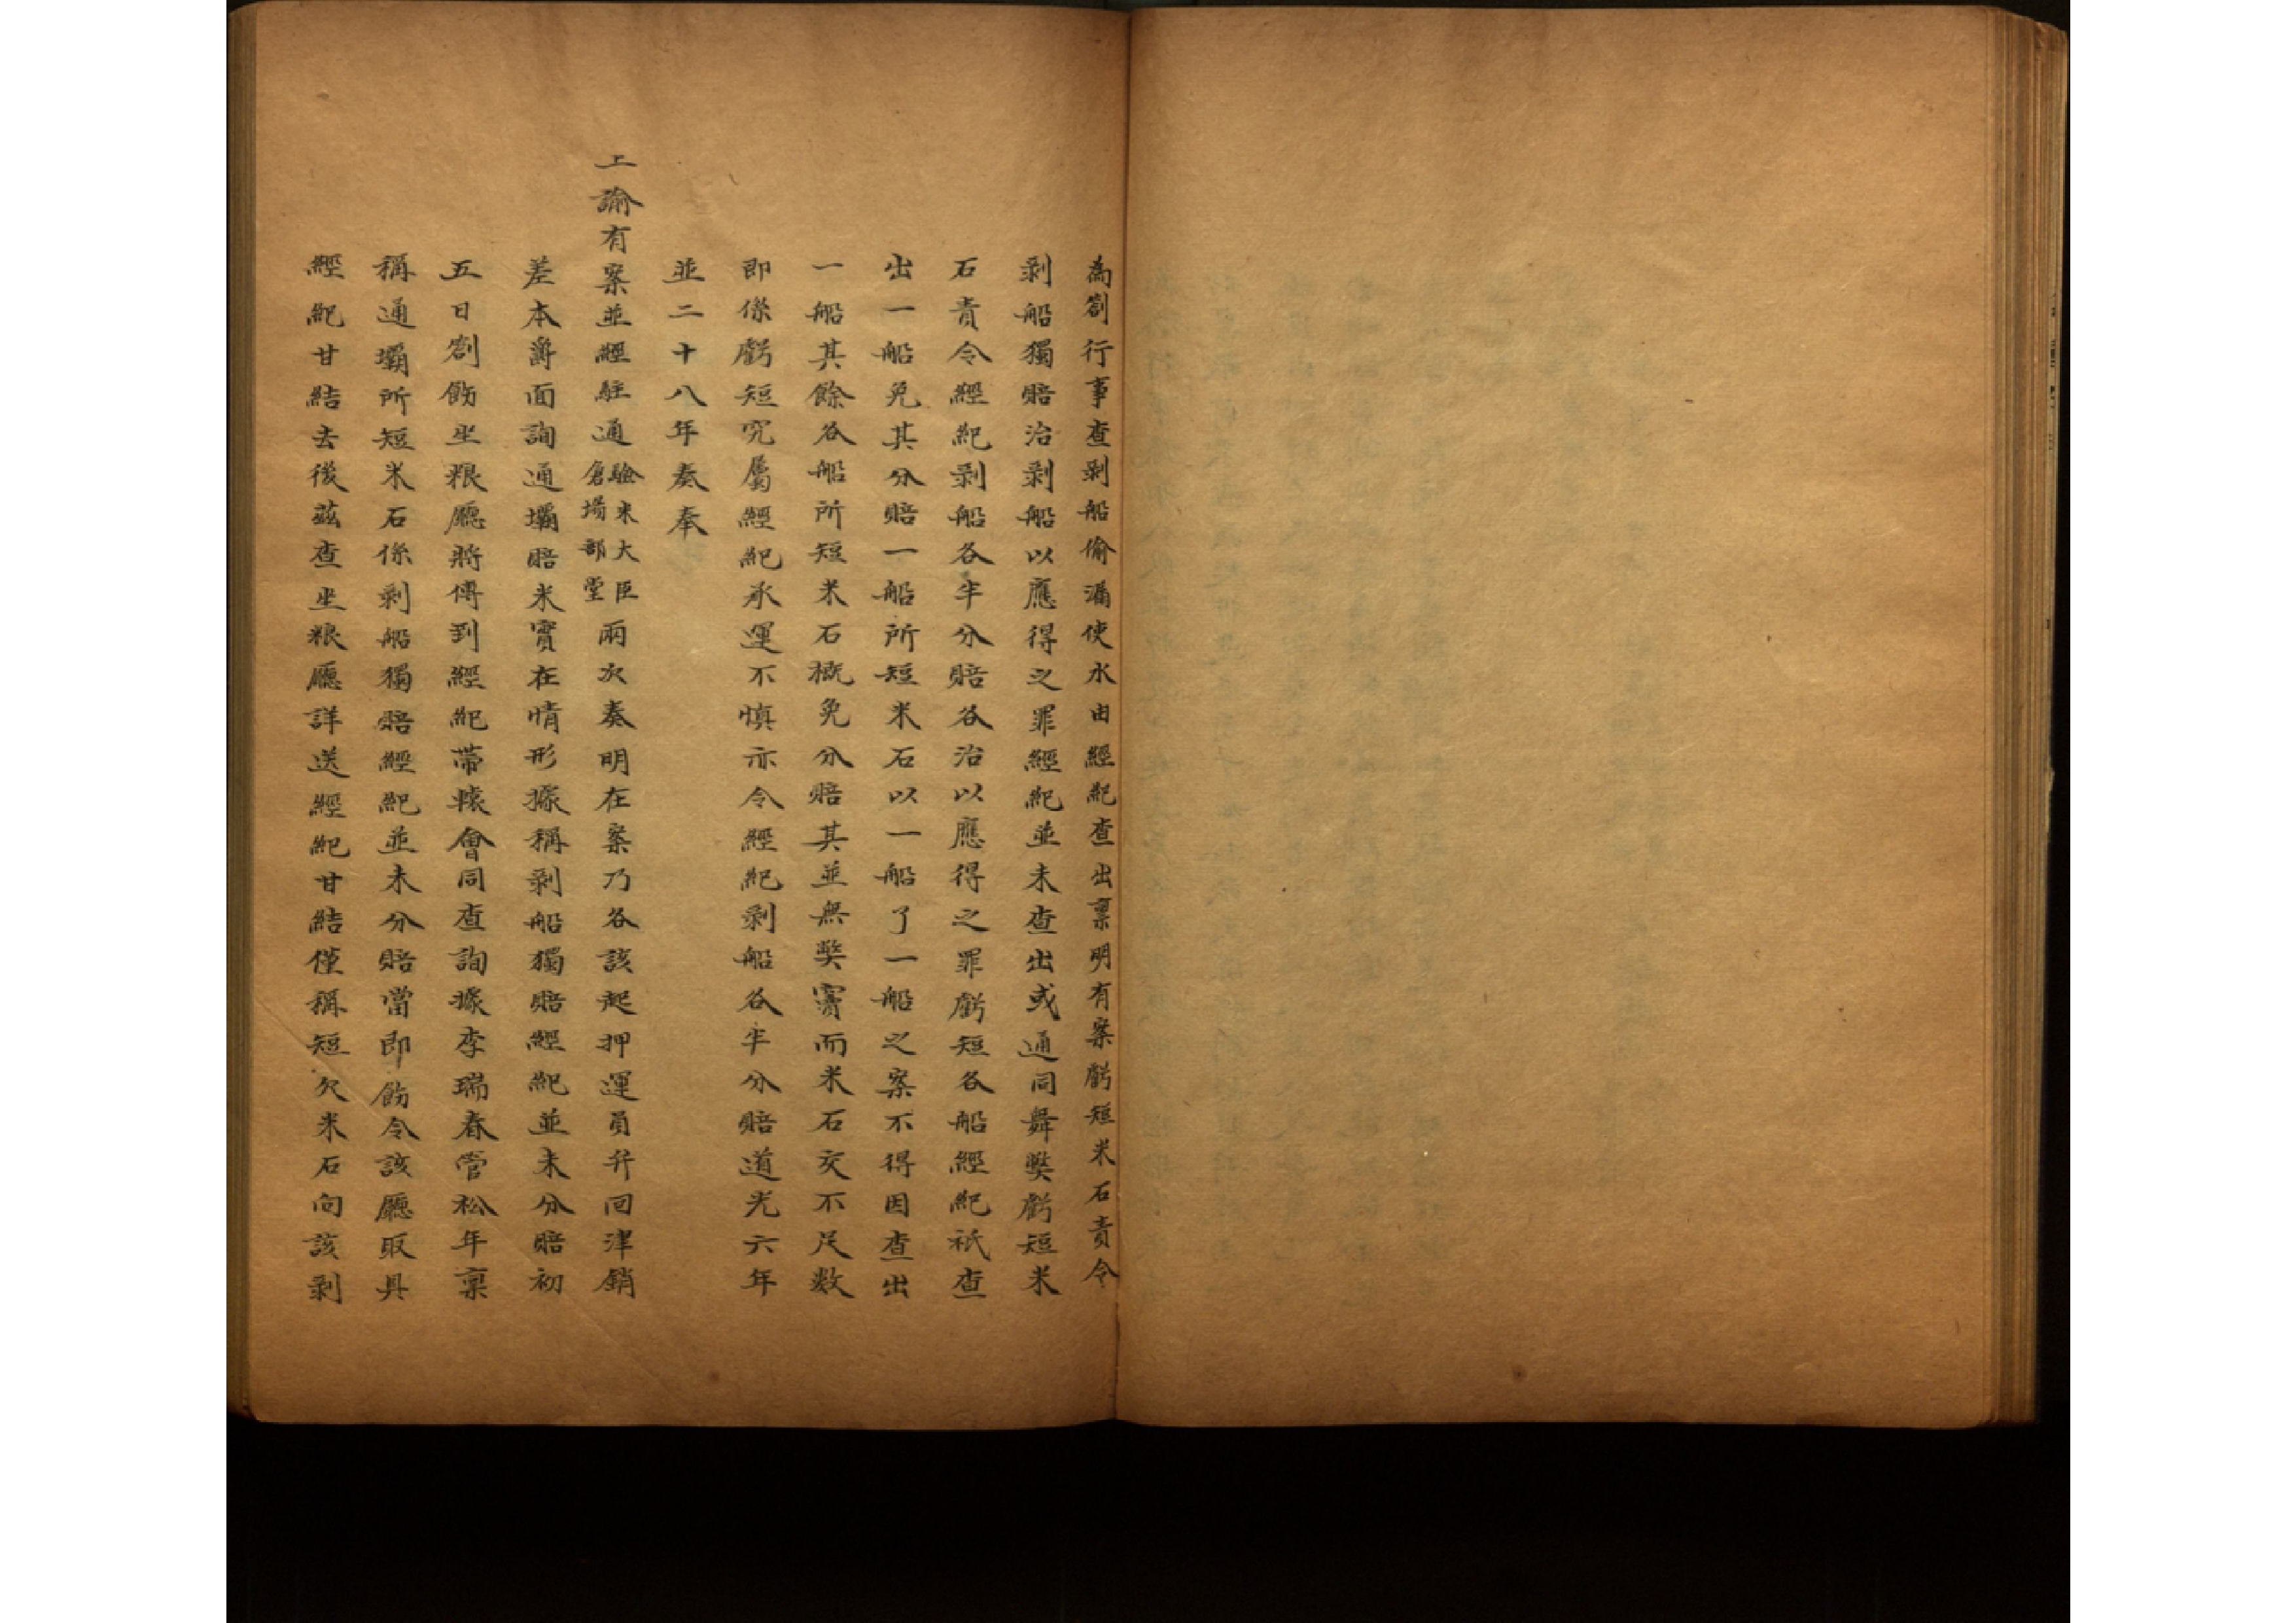 為劄行事查剥船偷漏使水由經紀查出禀明有案虧短米石責令
剥船獨賠治剥船以應得之罪經紀並未查出或通同舞獘虧短米
石責令經紀剥船各半分賠各治以應得之罪虧短各船經紀祇查
出一船免其分賠一船所短米石以一船了一船之案不得因查出
一船其餘各船所短米石概免分賠其並無獘竇而米石交不足数
即係虧短究屬經紀承運不慎亦令經紀剥船各半分賠道光六年
並二十八年奏奉
上諭有案並經駐通驗米大臣倉場部堂兩次奏明在案乃各該起押運員弁回津銷
差本爵面詢通壩賠米實在情形據稱剥船獨賠經紀並未分賠初
五日劄飭坐粮廳將傳到經紀帶轅會同查詢據李瑞春管松年禀
稱通壩所短米石係剥船獨賠經紀並未分賠當即飭令該廳取具
經紀甘結去後茲查坐粮廳詳送經紀甘結僅稱短欠米石向該剥